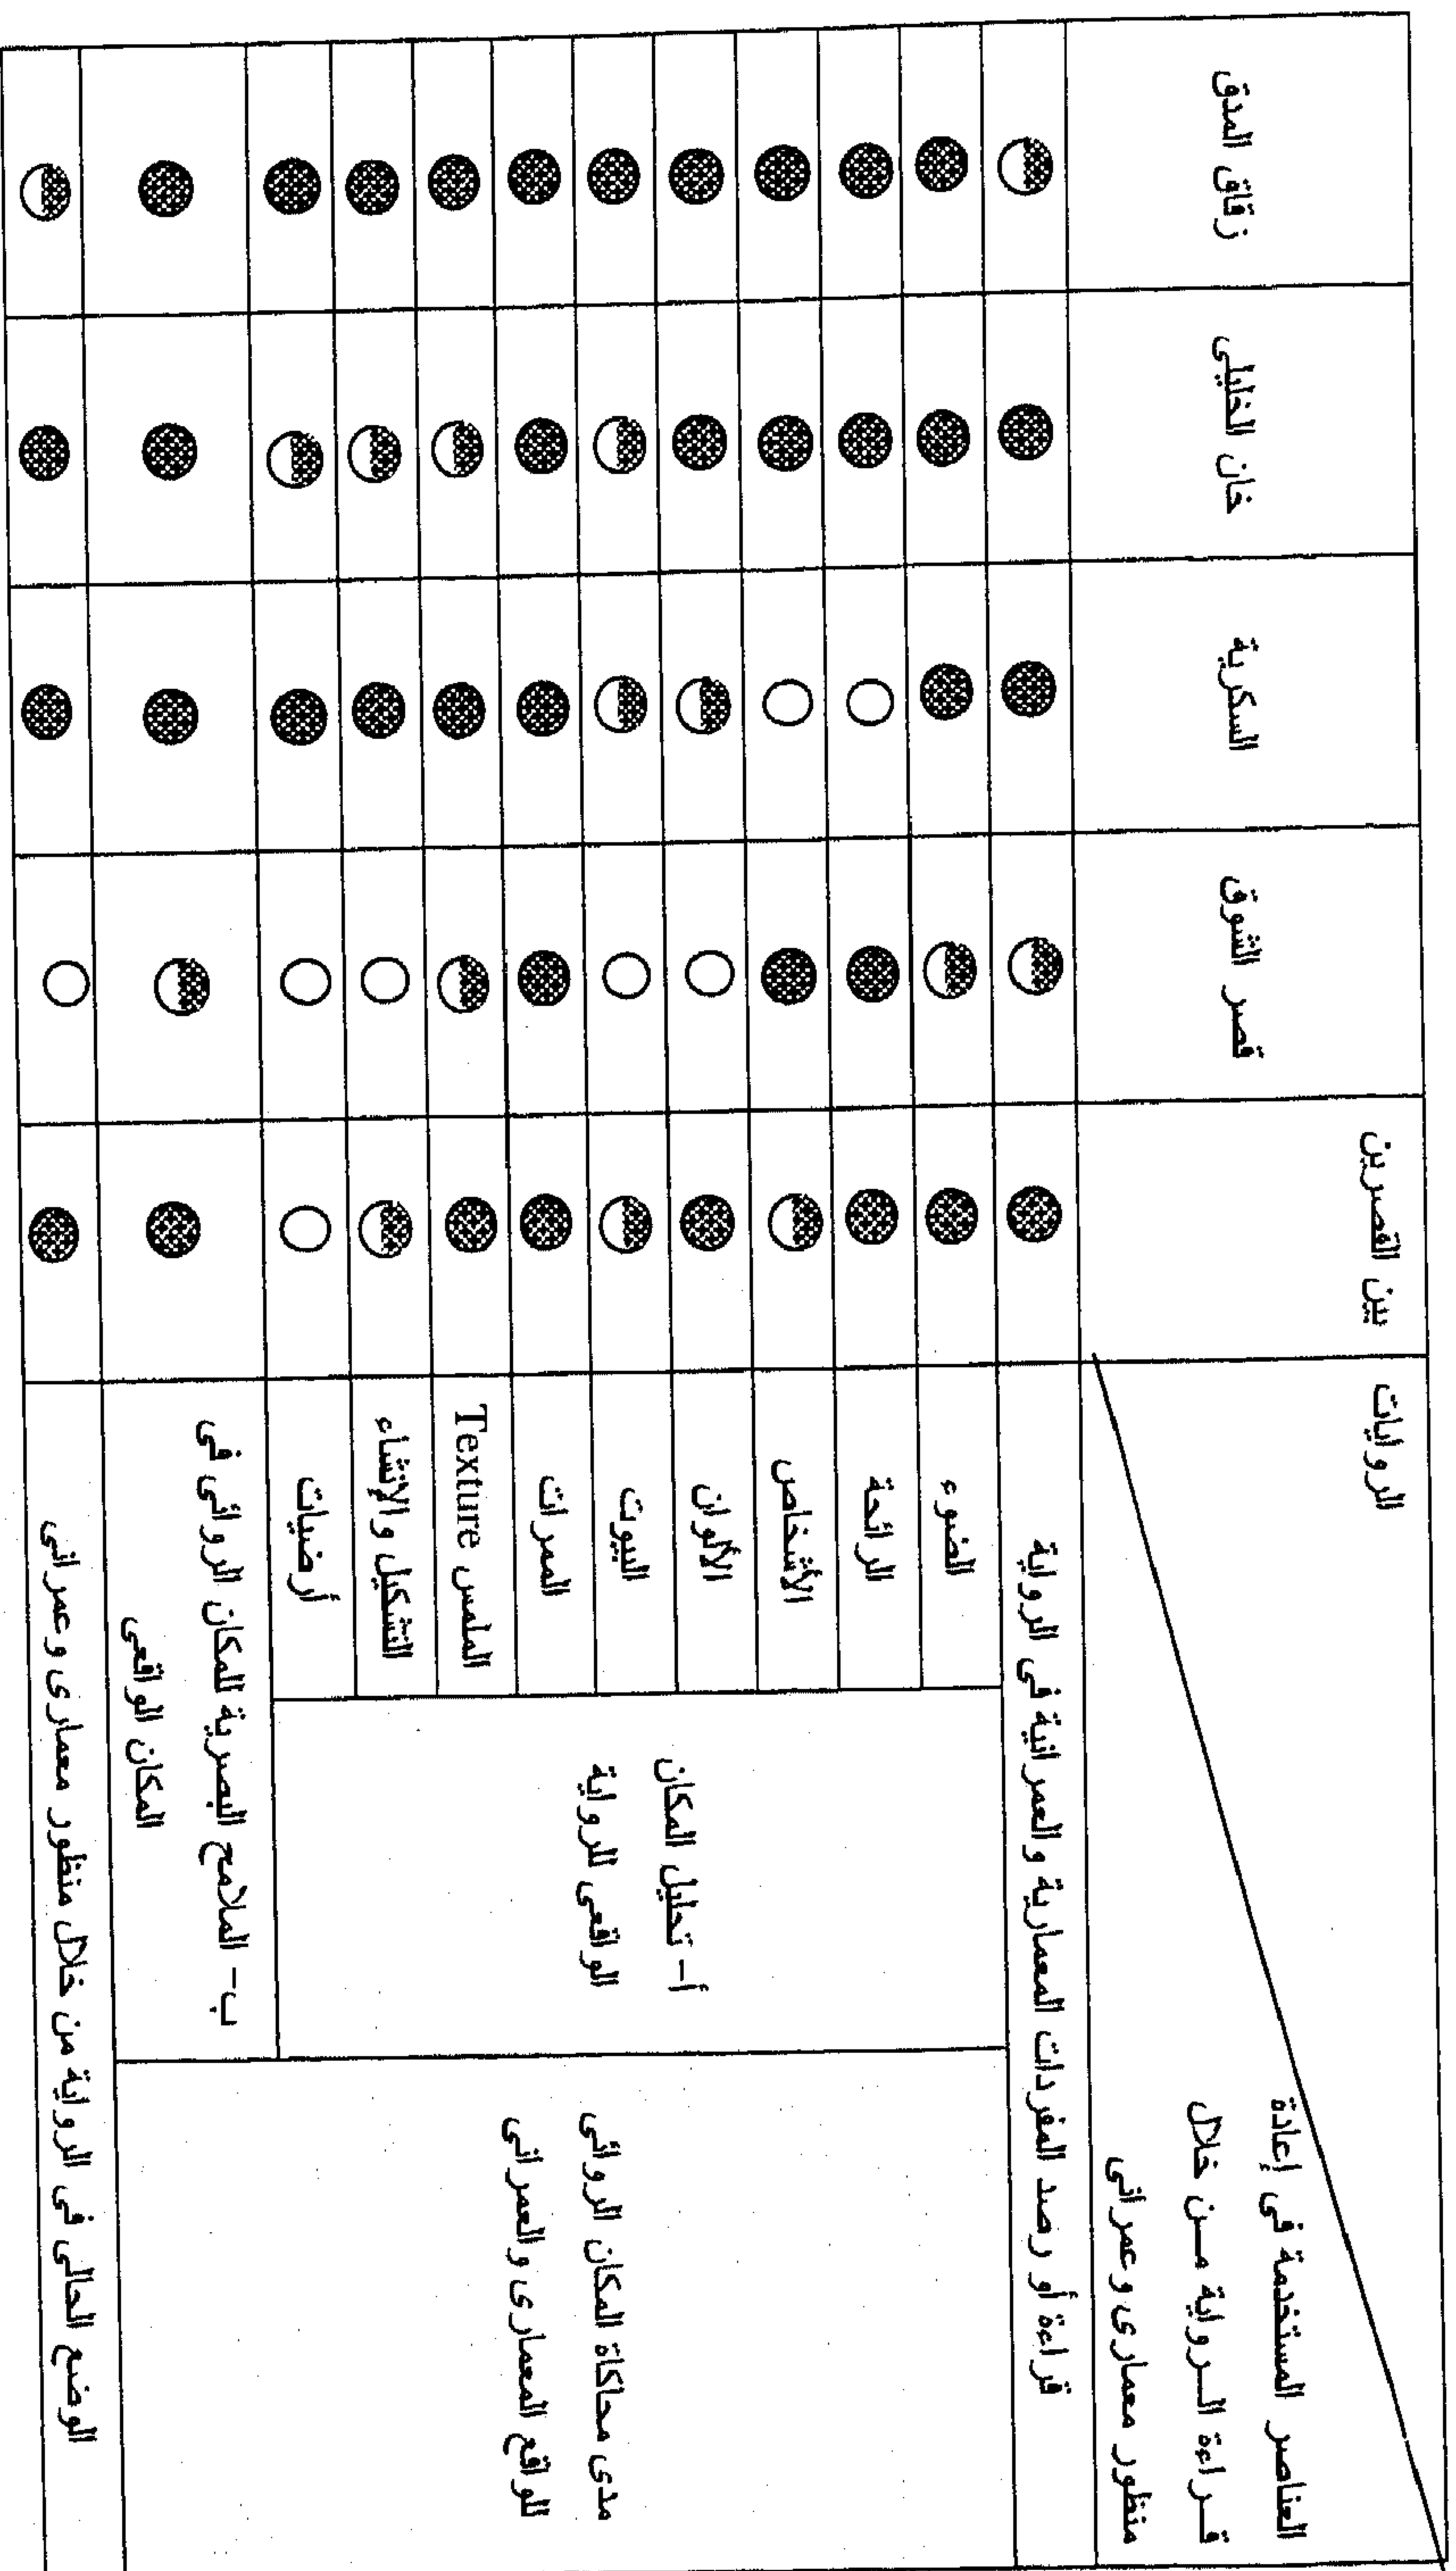 الروايات
العناصر المستخدمة فى إعادة
قراءة الرواية من خلال
منظور معمارى وعمرانى
بين القصرين
قصر الشوق
السكرية
خان الخليلى
زقاق المدق
قراءة أو رصد المفردات المعمارية والعمرانية فى الرواية
مدى محاكاة المكان الروائى
للواقع المعمارى والعمرانى
أ- تحليل المكان
الواقعى للرواية
الضوء
الرائحة
الأشخاص
الألوان
البيوت
الممرات
الملمس Texture
التشكيل والإنشاء
أرضيات
ب- الملامح البصرية للمكان الروائى فى
المكان الواقعى
الوضع الحالى فى الرواية من خلال منظور معمارى وعمرانى